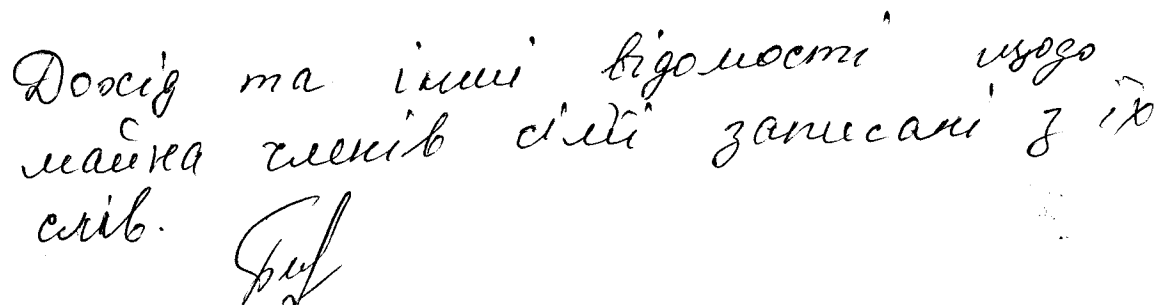 Дохід та інші відомості щодо
майна членів сім'ї записані з їх
слів.